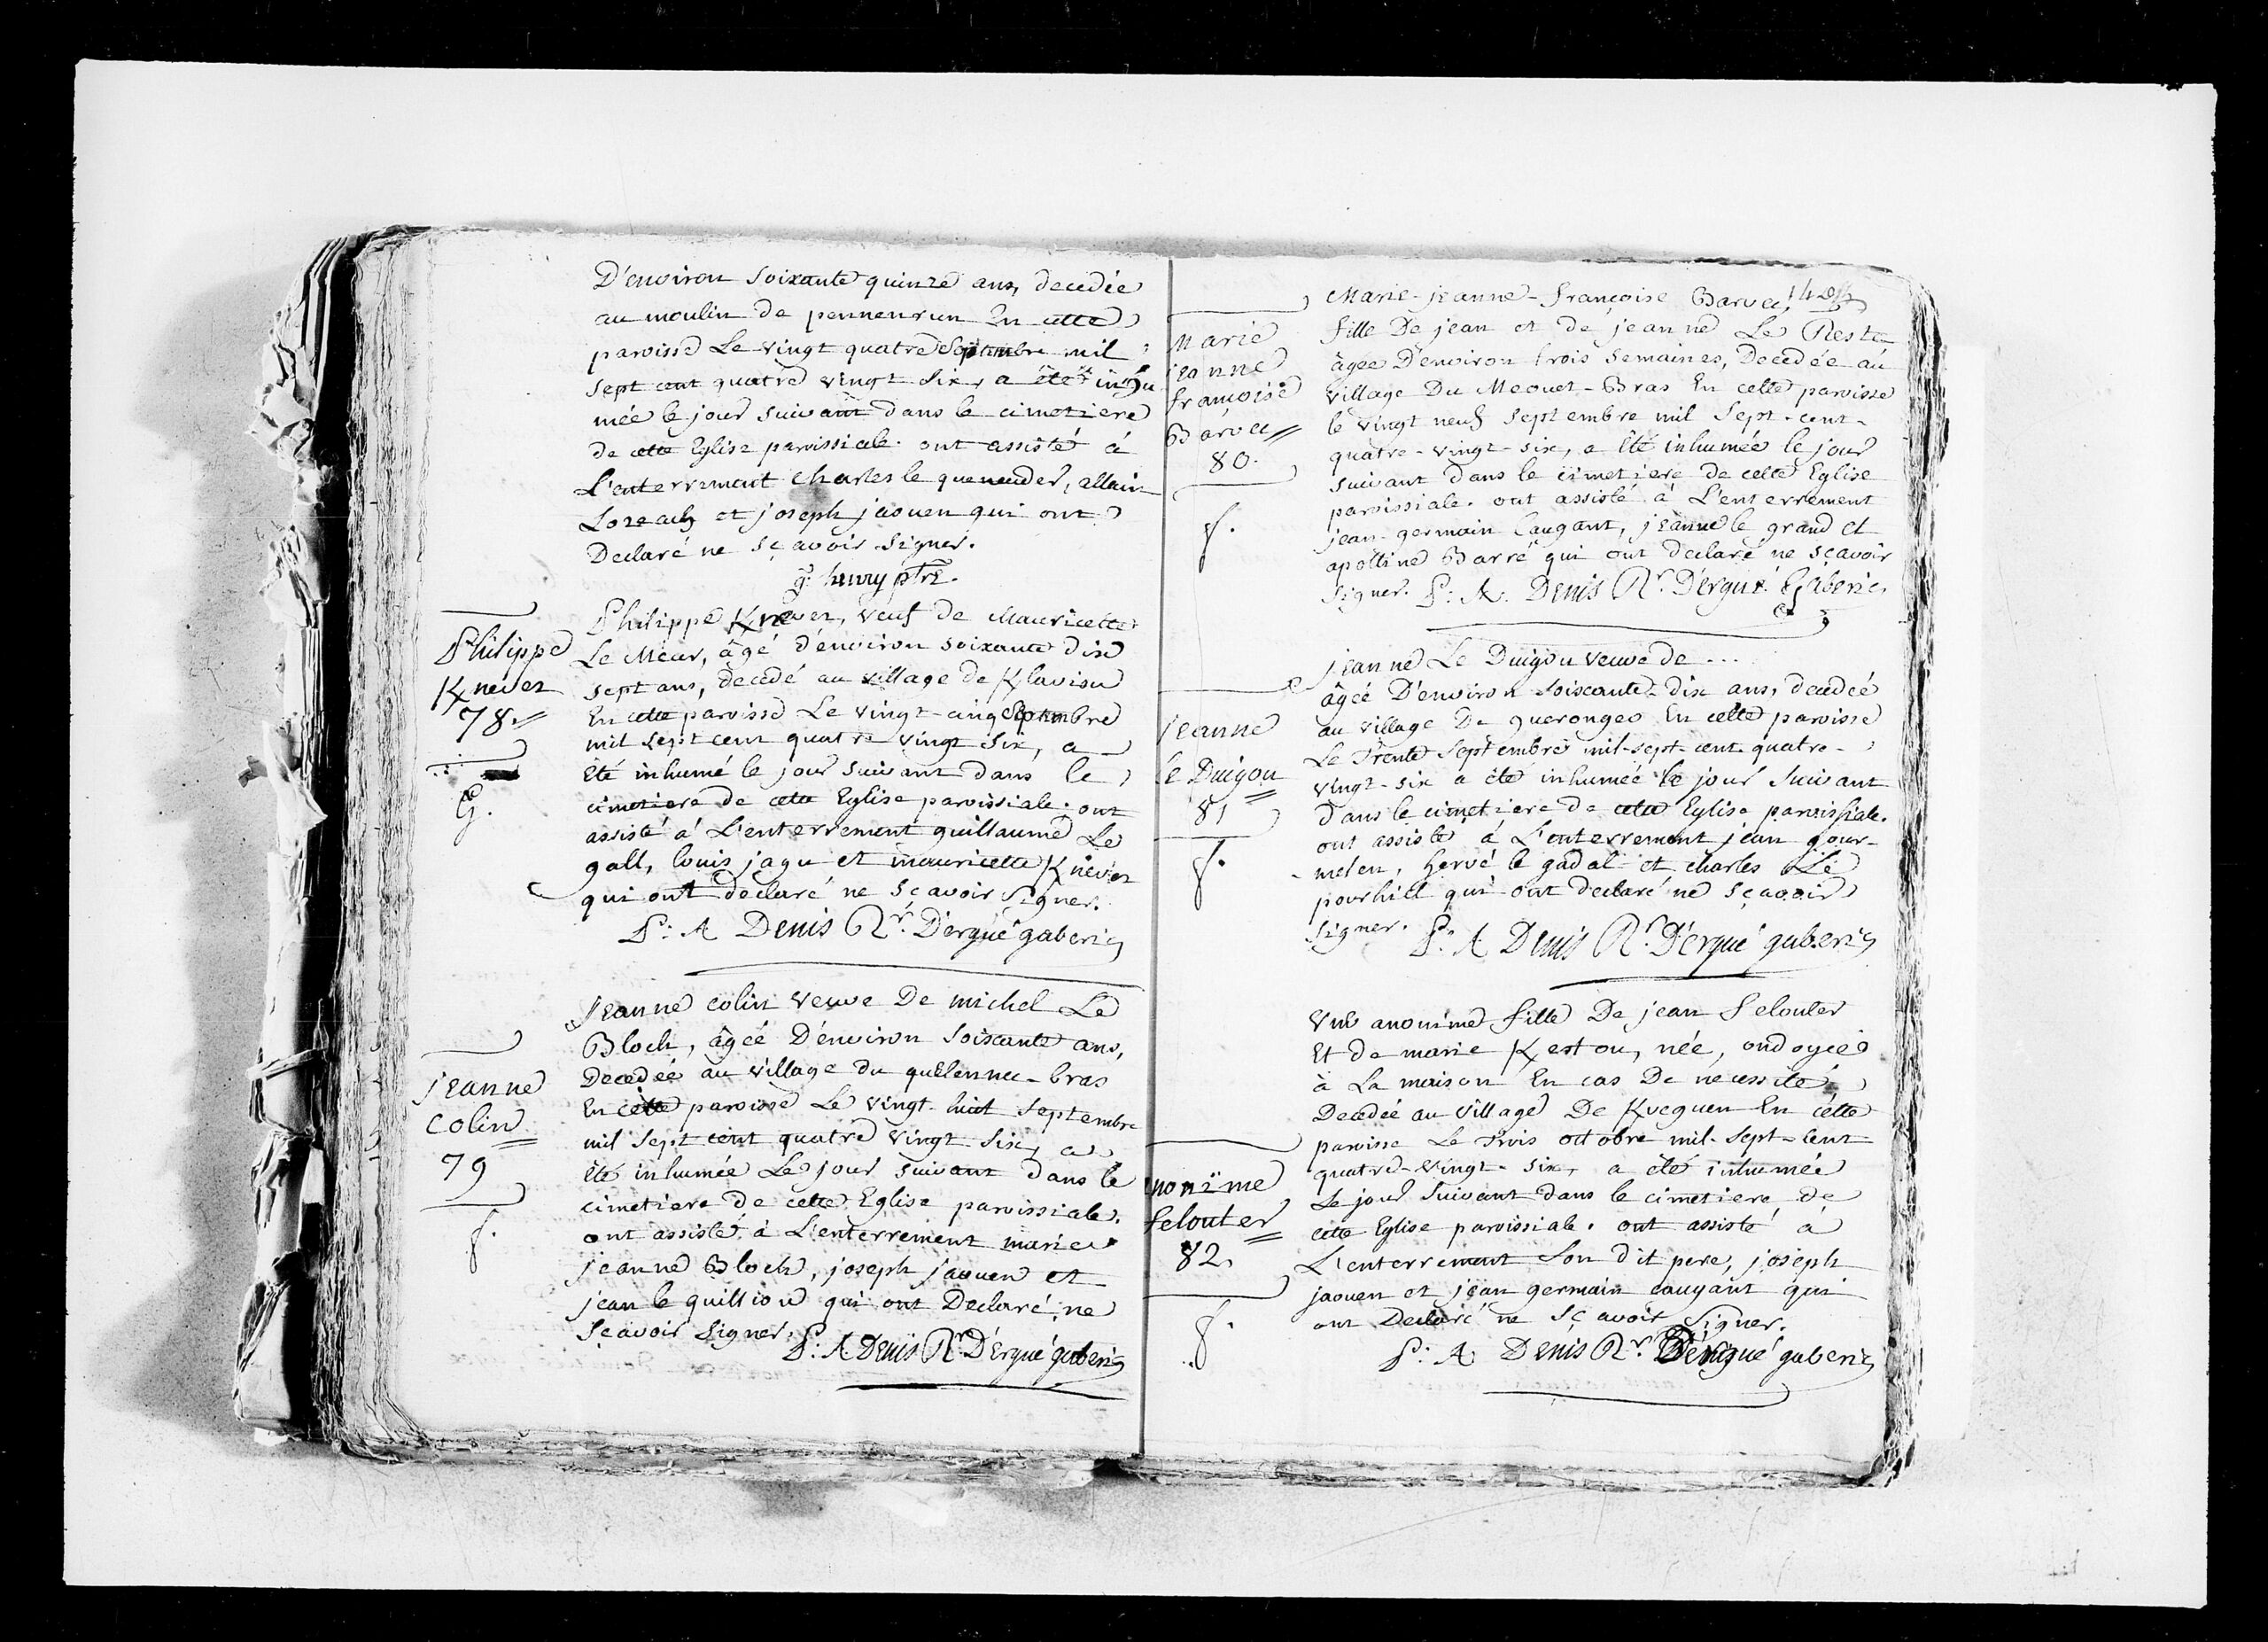 D'environ soixante quinze ans, decedée
au moulin de pennenrun En cette
paroisse Le vingt quatre Septembre mil
sept cent quatre vingt six, a été inhu
mée le jour suivant dans le cimetiere
de cette Eglise paroissiale. ont assisté á
L'enterrement charles le quenender, allain
Lozeach et joseph jaouen qui ont
Declaré ne sçavoir signer.
g. henry ptre.
Philippe
Knévez
78.
G.
Philippe Knevez, veuf de Mauricette
Le Meur, âgé d'énviron soixante dix
sept ans, decédé au village de Klavion
En cette paroisse Le vingt-cinq Septembre
mil sept cent quatre vingt six, a
été inhumé le jour suivant dans le
cimetiere de cette Eglise paroissiale. ont
assisté á L'enterrement guillaume Le
gall, louis jagu et mauricette Knévez
qui ont declaré ne sçavoir signer.
P: A Denis Rr. D'ergué gaberic
jeanne
Colin
79
f.
Jeanne colin veuve De michel Le
Bloch, âgée D'énviron soixante ans,
Decedée au village du quélennec-bras
En cette paroisse Le vingt-huit septembre
mil sept cent quatre vingt six, a
été inhumée Le jour suivant dans le
cimetiere de cette Eglise paroissiale.
ont assisté à L'enterrement marie
jeanne Bloch, joseph jaouen et
jean le guillou qui ont Declaré ne
sçavoir signer.
P: A Denis Rr. D'érgué gaberic
Marie
jeanne
françoise
Barvec
80.
f.
Marie-jeanne-françoise Barvec
fille De jean et de jeanne Le Reste
âgée D'environ trois semaines, Decedée au
village Du Meouet-Bras En cette paroisse
le vingt neuf septembre mil sept-cent-
quatre-vingt-six, a été inhumée le jour
suivant dans le cimetiere de cette Eglise
paroissiale. ont assisté á L'enterrement
jean-germain Caugant, jeanne le grand et
apolline Barré qui ont declaré ne sçavoir
signer. P: A. Denis Rr. D'ergué Gaberic
Jeanne
le Duigou
81
f.
jeanne Le Duigou veuve de ...
âgée D'environ soixante-dix ans, decedeé
au village De queronges En cette paroisse
Le Trente Septembre mil-sept-cent quatre-
vingt-six a été inhumée le jour suivant
dans le cimetiere de cette Eglise paroissiale.
ont assisté á L'enterrement jean gour-
melen, hervé le gadal et charles Le
pourhiet qui ont declaré ne sçavoir
signer. P: A Denis Rr. D'érgué gaberic
nonime
felouter
82.
f.
Une anonime fille De jean Felouter
Et de marie Kestou, née, ondoyée
à La maison En cas De nécessité,
Decedée au village De Kveguen En cette
paroisse Le trois octobre mil-sept-cent
quatre-vingt-six, a été inhumée
Le jour suivant dans le cimetiere de
cette Eglise paroissiale. ont assisté á
L'enterrement Son dit pere, joseph
jaouen et jean germain caugant qui
ont Declaré ne sçavoir signer.
P: A Denis Rr. D'érgué gaberic